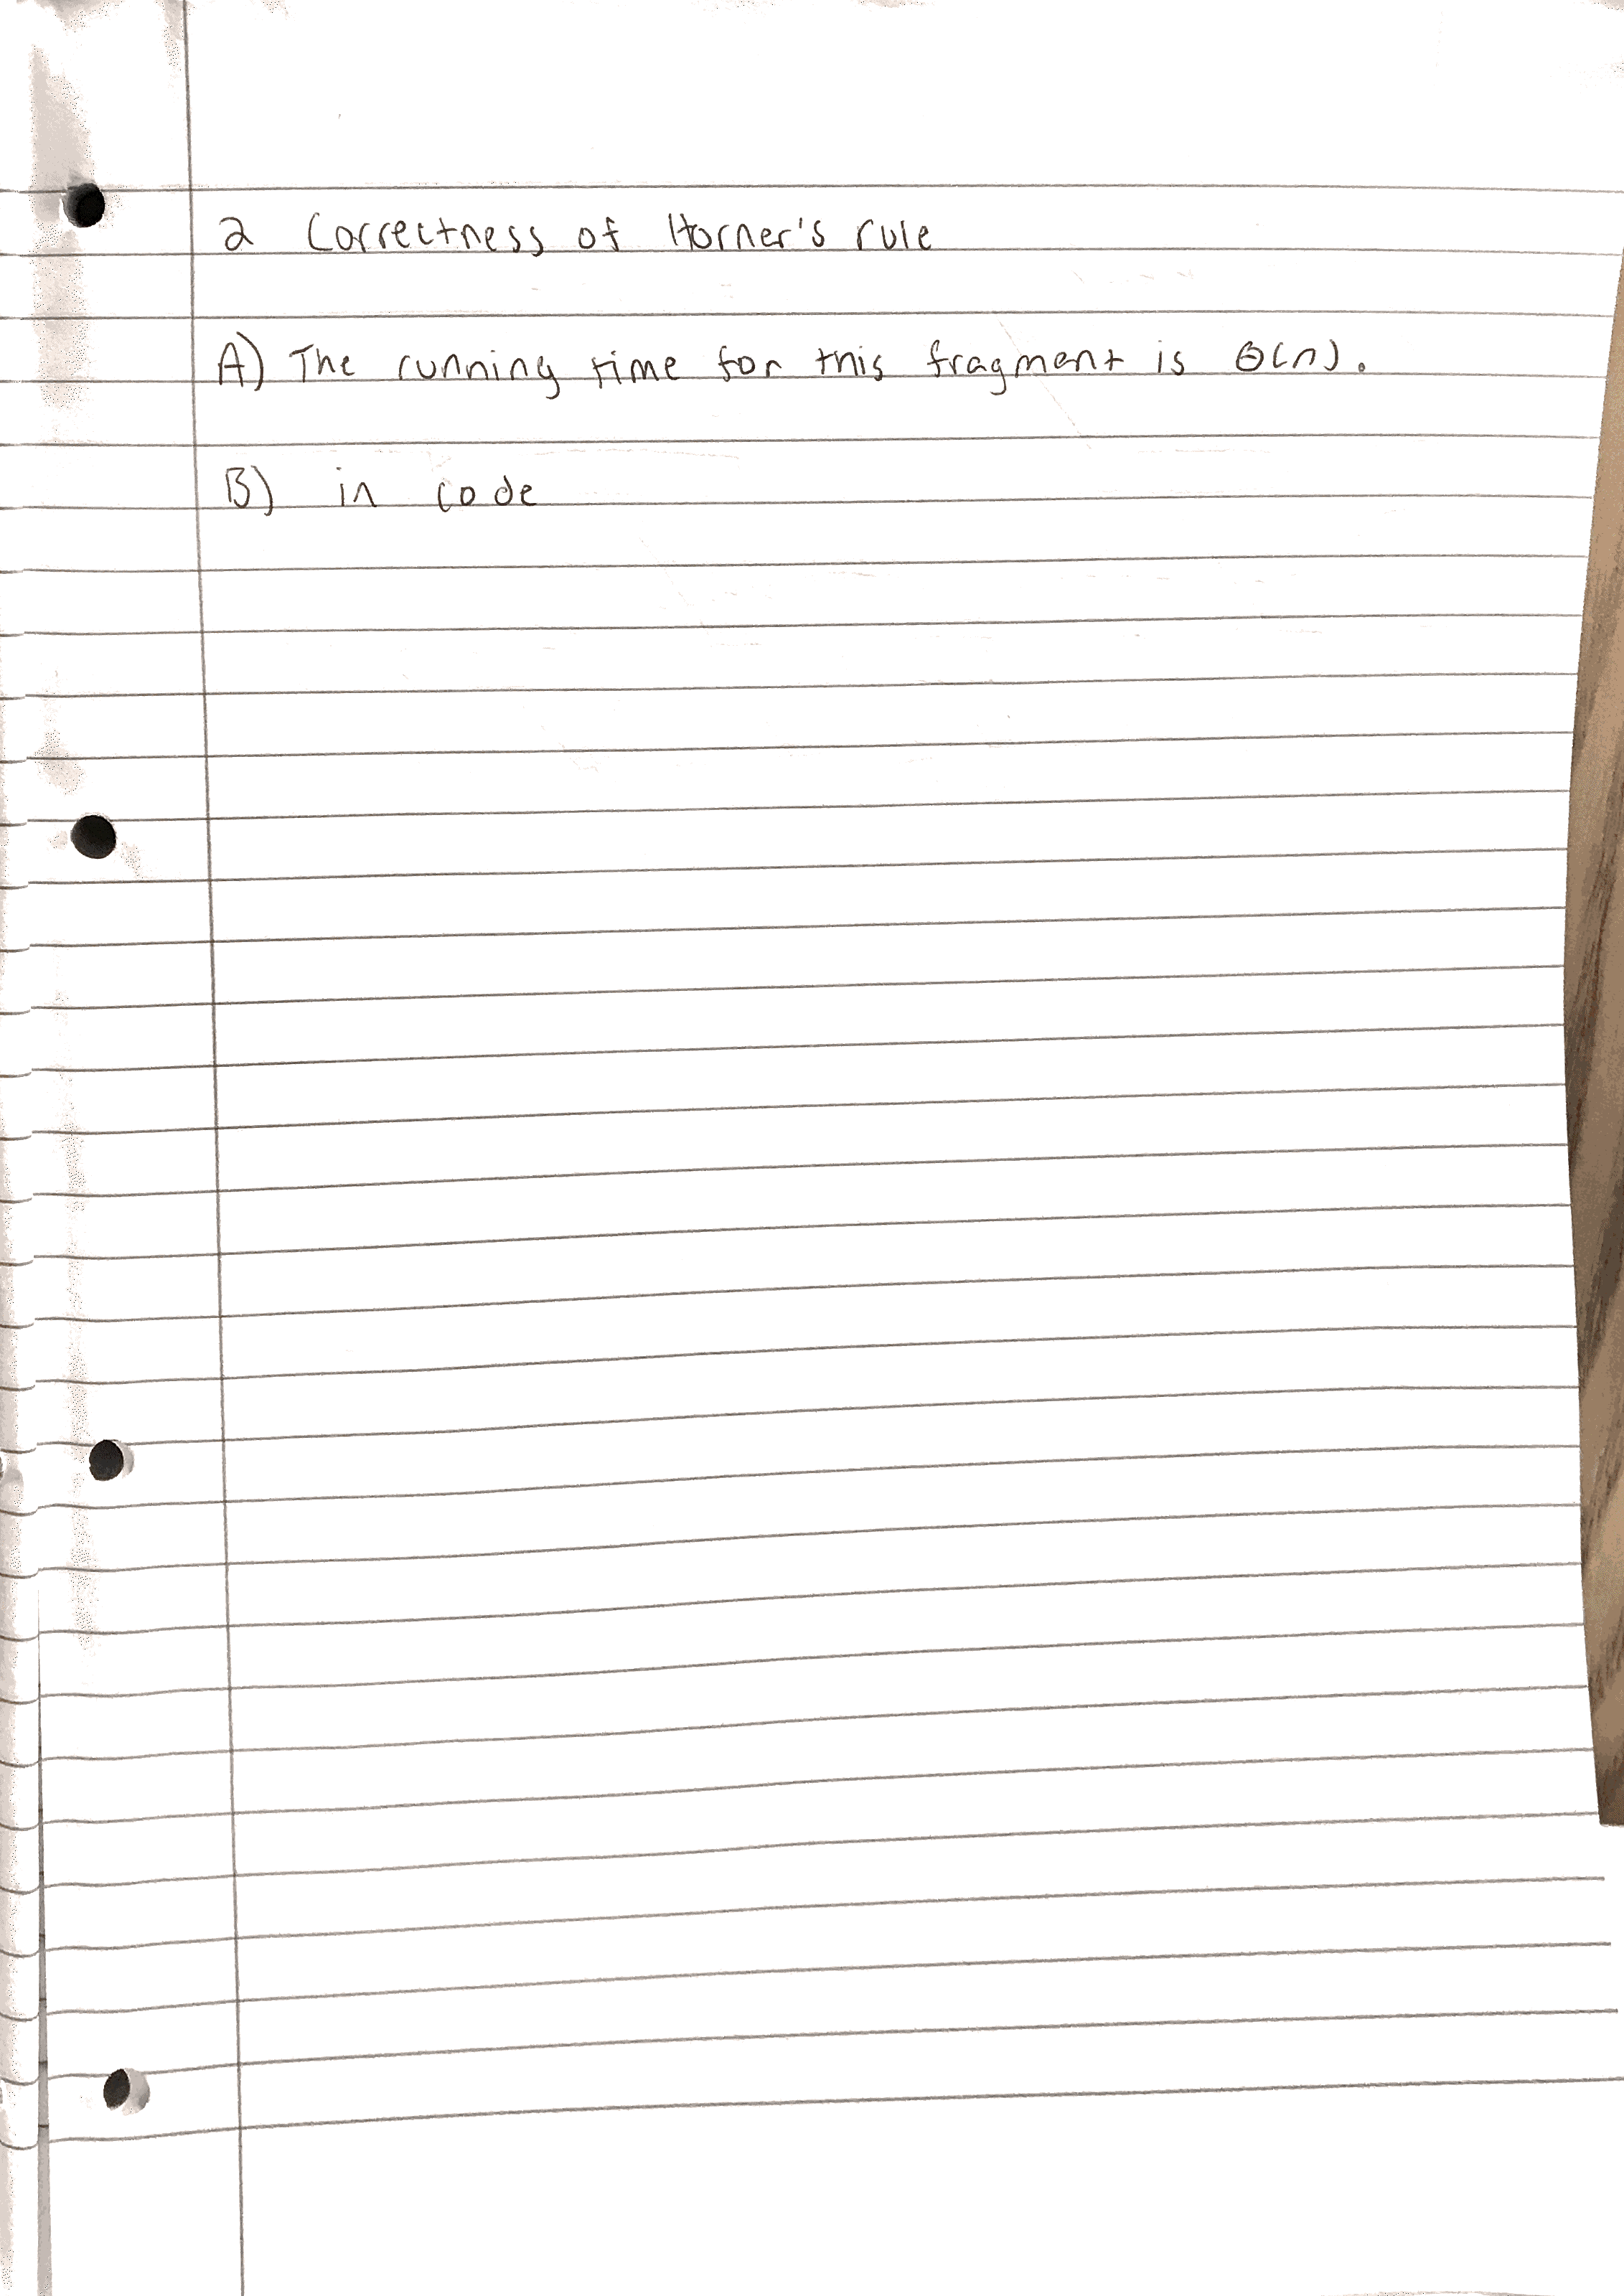 2 Correctness of Horner's rule
A) The running time for this fragment is Θ(n).
B) in code